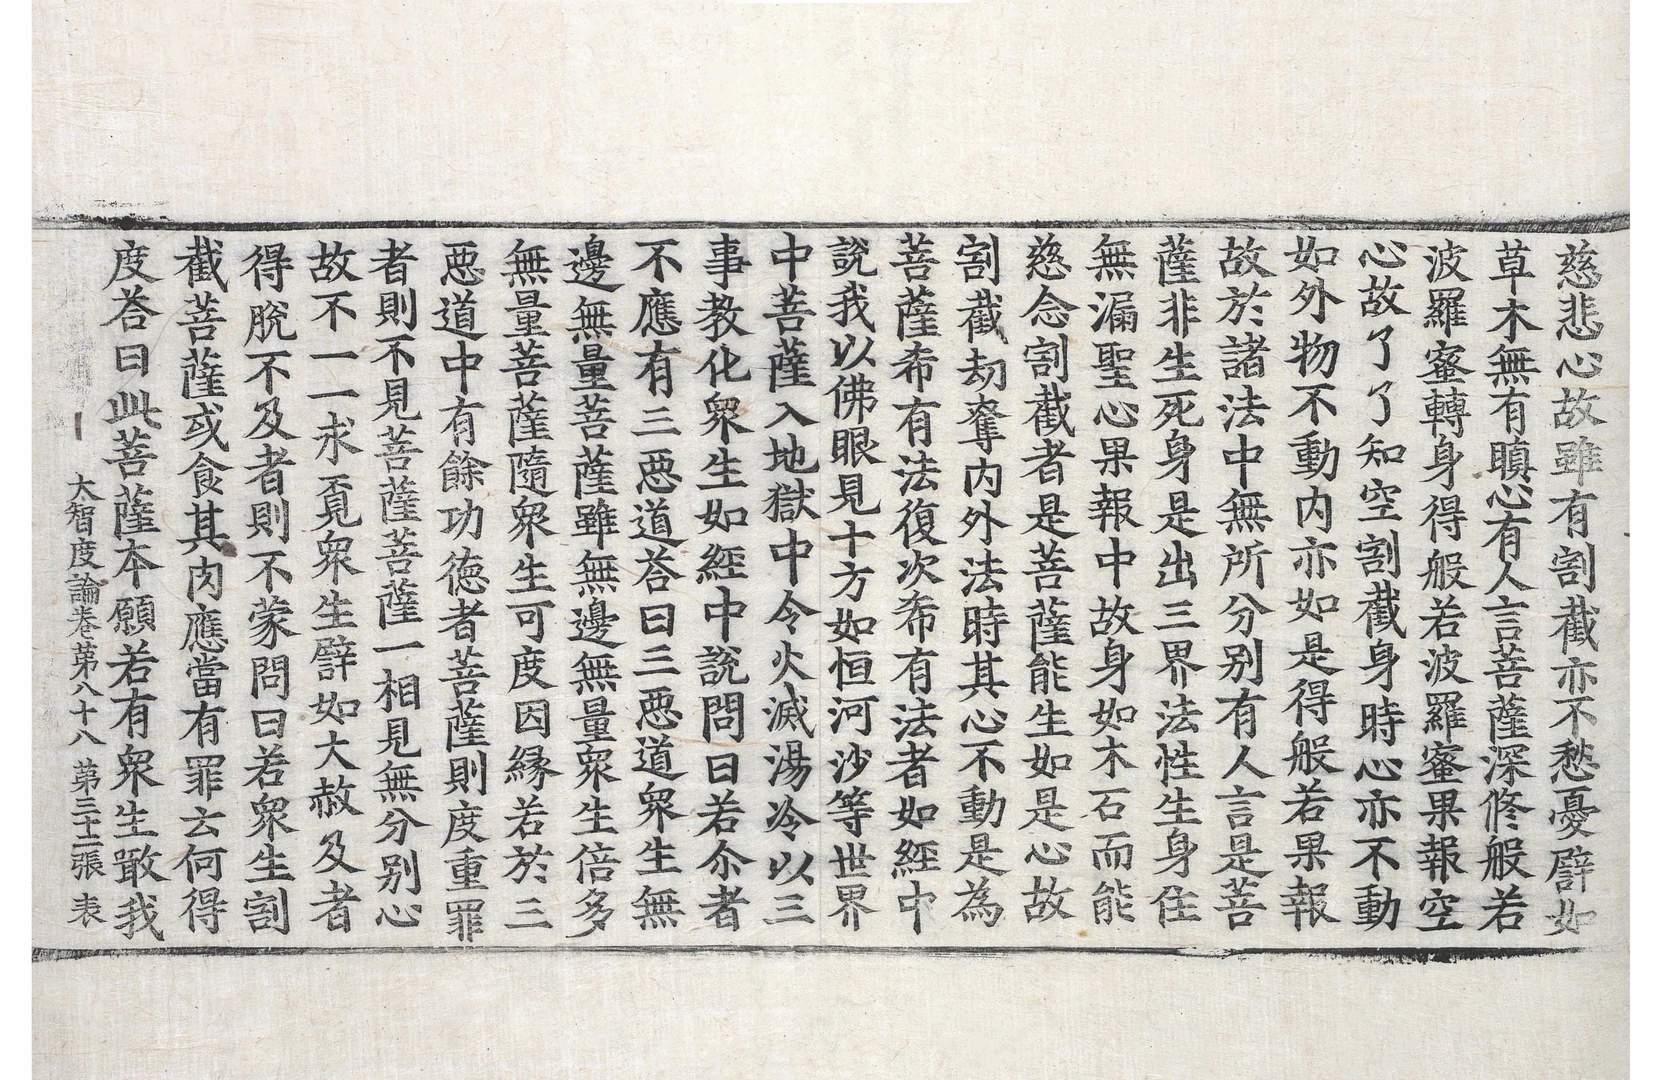 慈悲心故雖有割截亦不愁憂譬如
草木無有瞋心有人言菩薩深修般若
波羅蜜轉身得般若波羅蜜果報空
心故了了知空割截身時心亦不動
如外物不動內亦如是得般若果報
故於諸法中無所分別有人言是菩
薩非生死身是出三界法性生身住
無漏聖心果報中故身如木石而能
慈念割截者是菩薩能生如是心故
割截劫奪內外法時其心不動是為
菩薩希有法復次希有法者如經中
說我以佛眼見十方如恒河沙等世界
中菩薩入地獄中令火滅湯冷以三
事教化衆生如經中說問曰若尒者
不應有三惡道荅曰三惡道衆生無
邊無量菩薩雖無邊無量衆生倍多
無量菩薩隨衆生可度因緣若於三
惡道中有餘功德者菩薩則度重罪
者則不見菩薩菩薩一相見無分別心
故不一一求覓衆生譬如大赦及者
得脫不及者則不蒙問曰若衆生割
截菩薩或食其肉應當有罪云何得
度荅曰此菩薩本願若有衆生噉我
大智度論卷第八十八 第三十二張 表